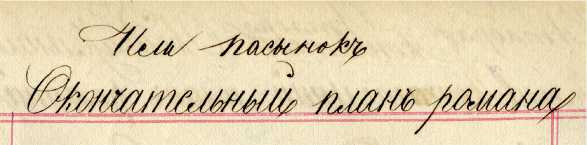 Или пасынокъ
Окончательный планъ романа